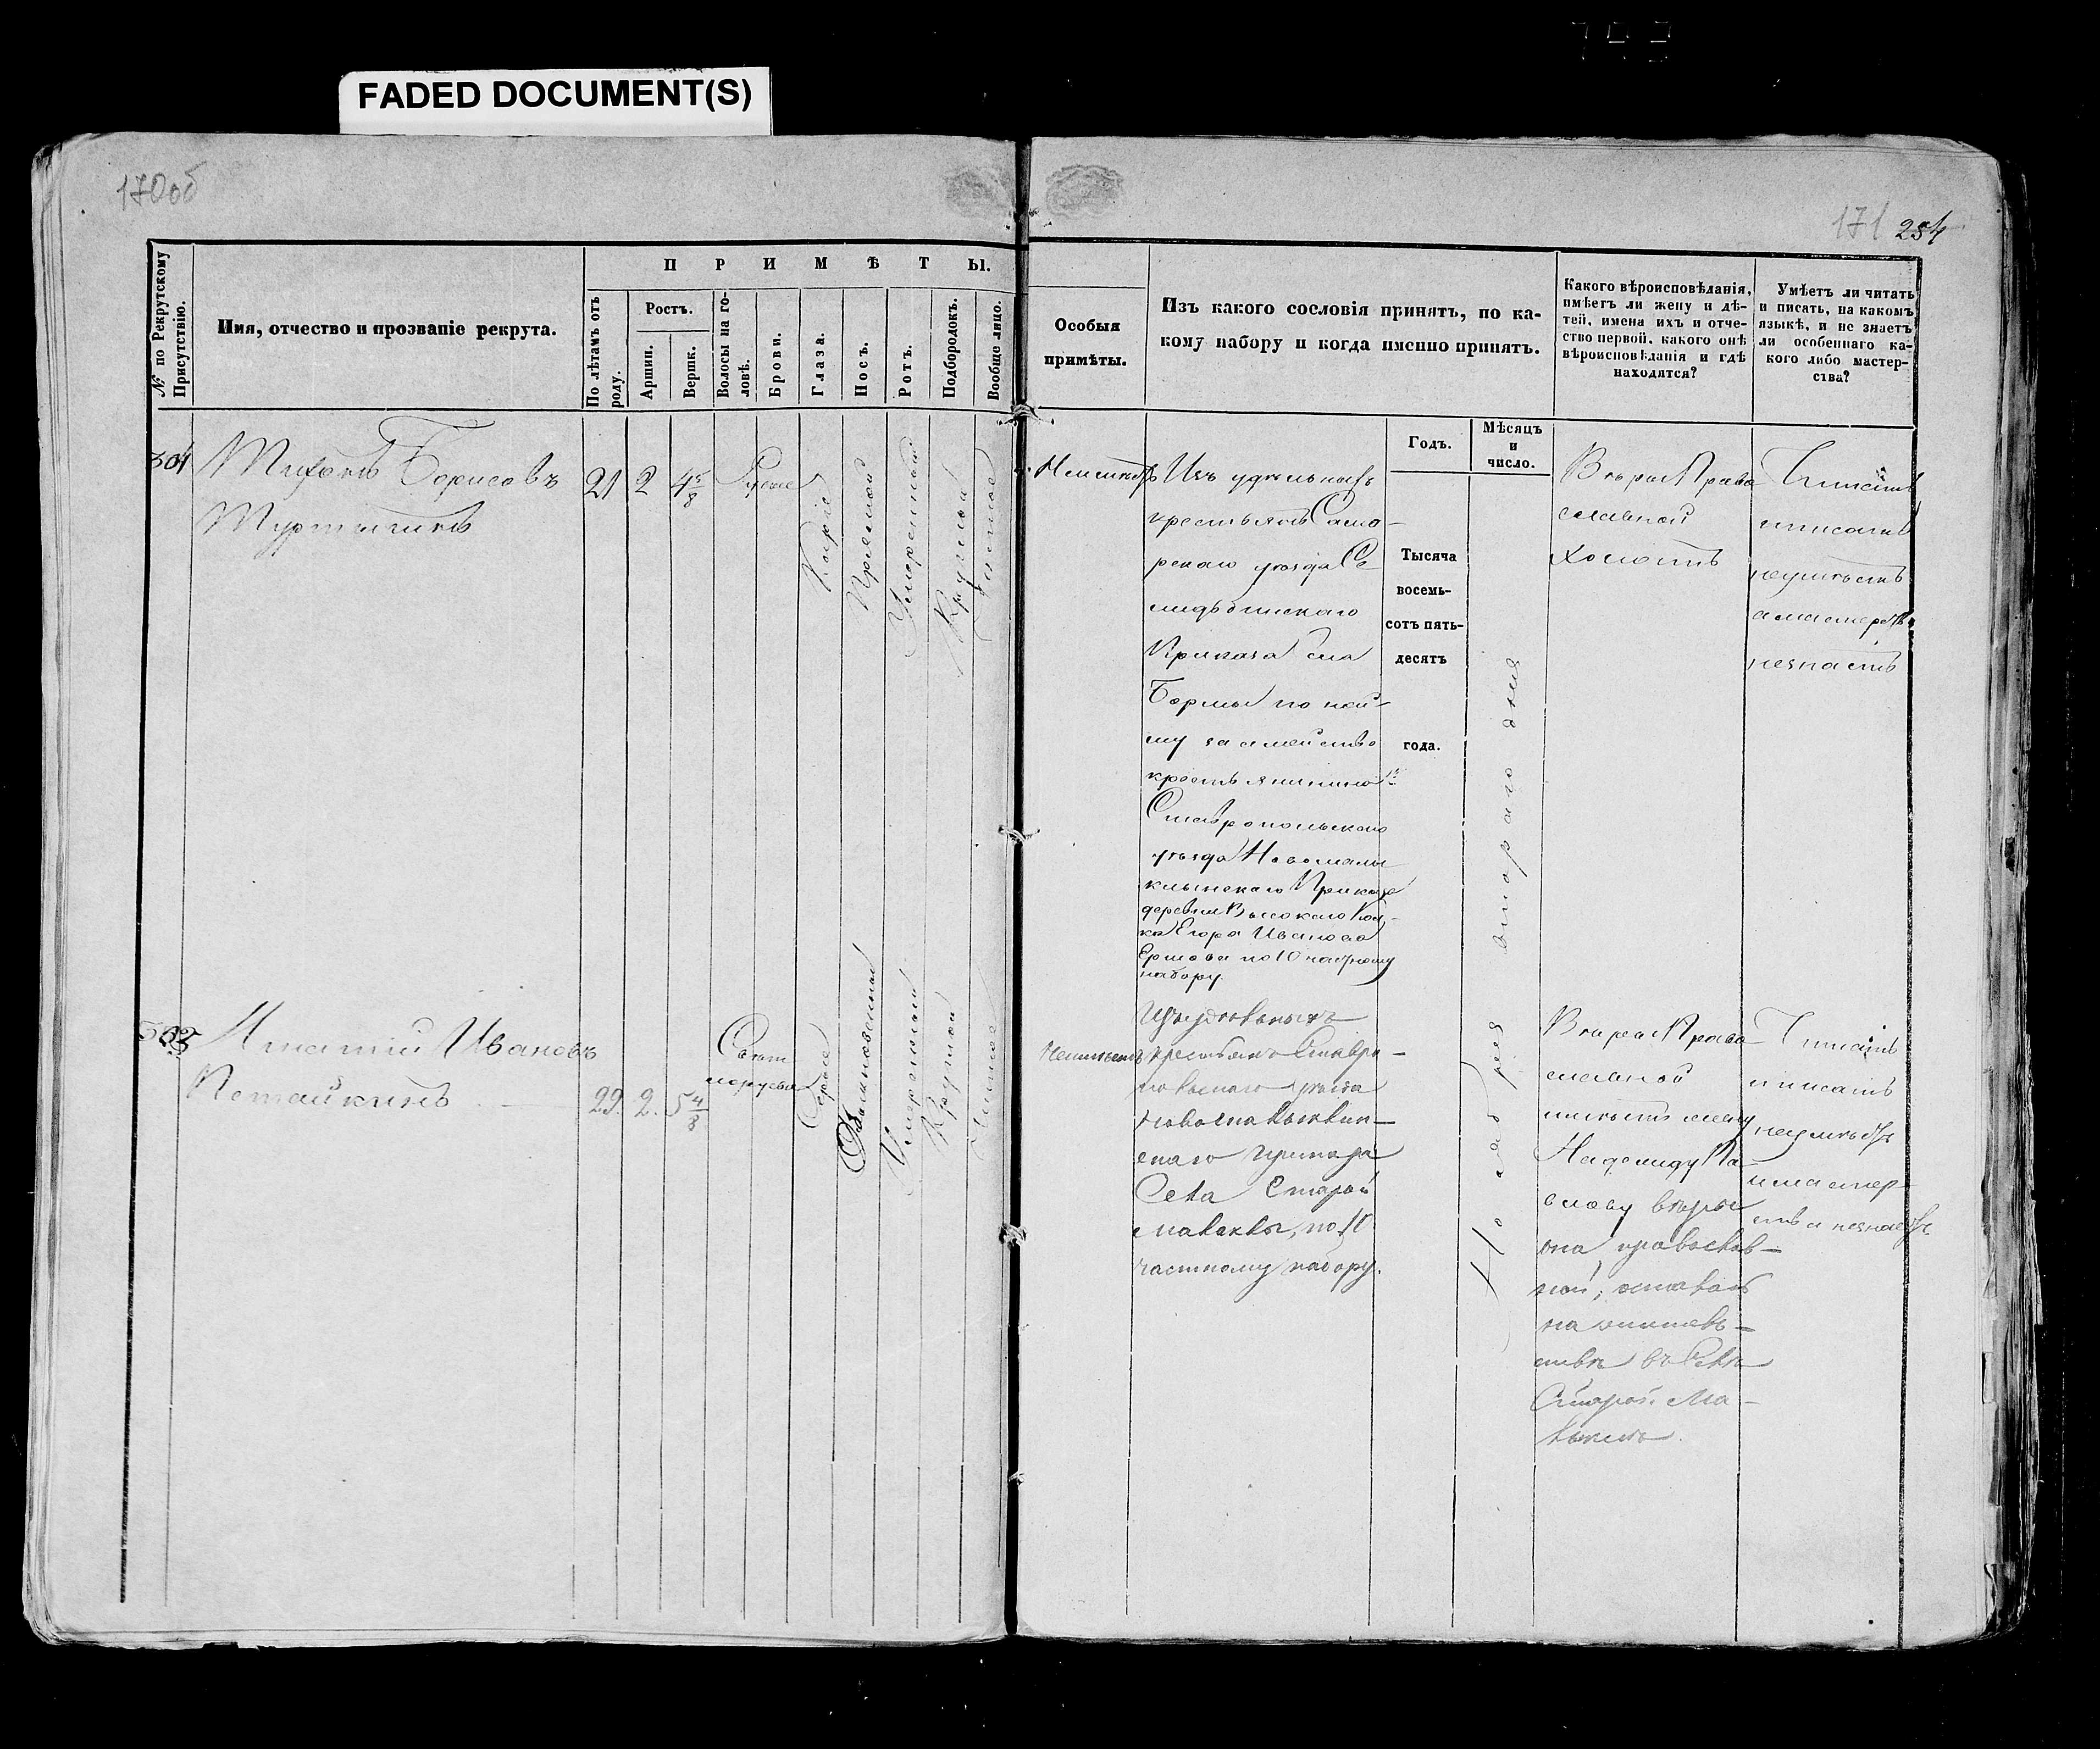 FADED DOCUMENT(S)
170об
171 254
№ по Рекрутскому Присутствію.
Имя, отчество и прозваніе рекрута.
ПРИМѢТЫ.
По лѣтамъ отъ роду.
Ростъ.
Аршин.
Вершк.
Волосы на головѣ.
Брови.
Глаза.
Носъ.
Ротъ.
Подбородокъ.
Вообще лицо.
Особыя
примѣты.
Изъ какого сословія принятъ, по ка-
кому набору и когда именно принятъ.
Какого вѣроисповѣданія,
имѣетъ ли жену и дѣ-
тей, имена ихъ и отче-
ство первой, какого онѣ
вѣроисповѣданія и гдѣ
находятся?
Умѣетъ ли читать
и писать, на какомъ
языкѣ, и не знаетъ
ли особеннаго ка-
кого либо мастер-
ства?
Годъ.
Мѣсяцъ
и
число.
Тысяча
восемь-
сотъ пять-
десятъ
года.
Ноября втораго дня
501
Борисовъ
21 2 4 5/8
Русые
Каріе
Прямой
Умѣренный
Круглый
Чистое
Изъ удѣльныхъ
крестьянъ Само-
рскаго уѣзда
Приказа села
Бормы по най-
му за семейство
крестьянина
Ставропольскаго
уѣзда Новомалы
клынскаго Приказа
деревни Высокаго Кол-
ка Егора Иванова
Ершова по 10 частному
набору.
Вѣры Право
славной
холостъ
Читать
писать
неумѣетъ
а мастерств
незнаетъ
502
Игнатій Ивановъ
Петайкинъ
29. 2. 5 4/8
Свѣт
лорусые
Сѣрые
Умѣренный
Круглой
Чистое
Неимѣетъ
Изъ удѣльныхъ
крестьянъ Ставро-
польскаго уѣзда
Новомалыклин-
скаго приказа
Села Старой
малыклы, по 10
частному набору.
Вѣры Право
славной
имѣетъ жену
Па-
влову вѣры
она православ-
ной,
въ Селѣ
Старой Ма-
лыклѣ.
Читать
писать
неумѣетъ
и мастер
ства незнаетъ